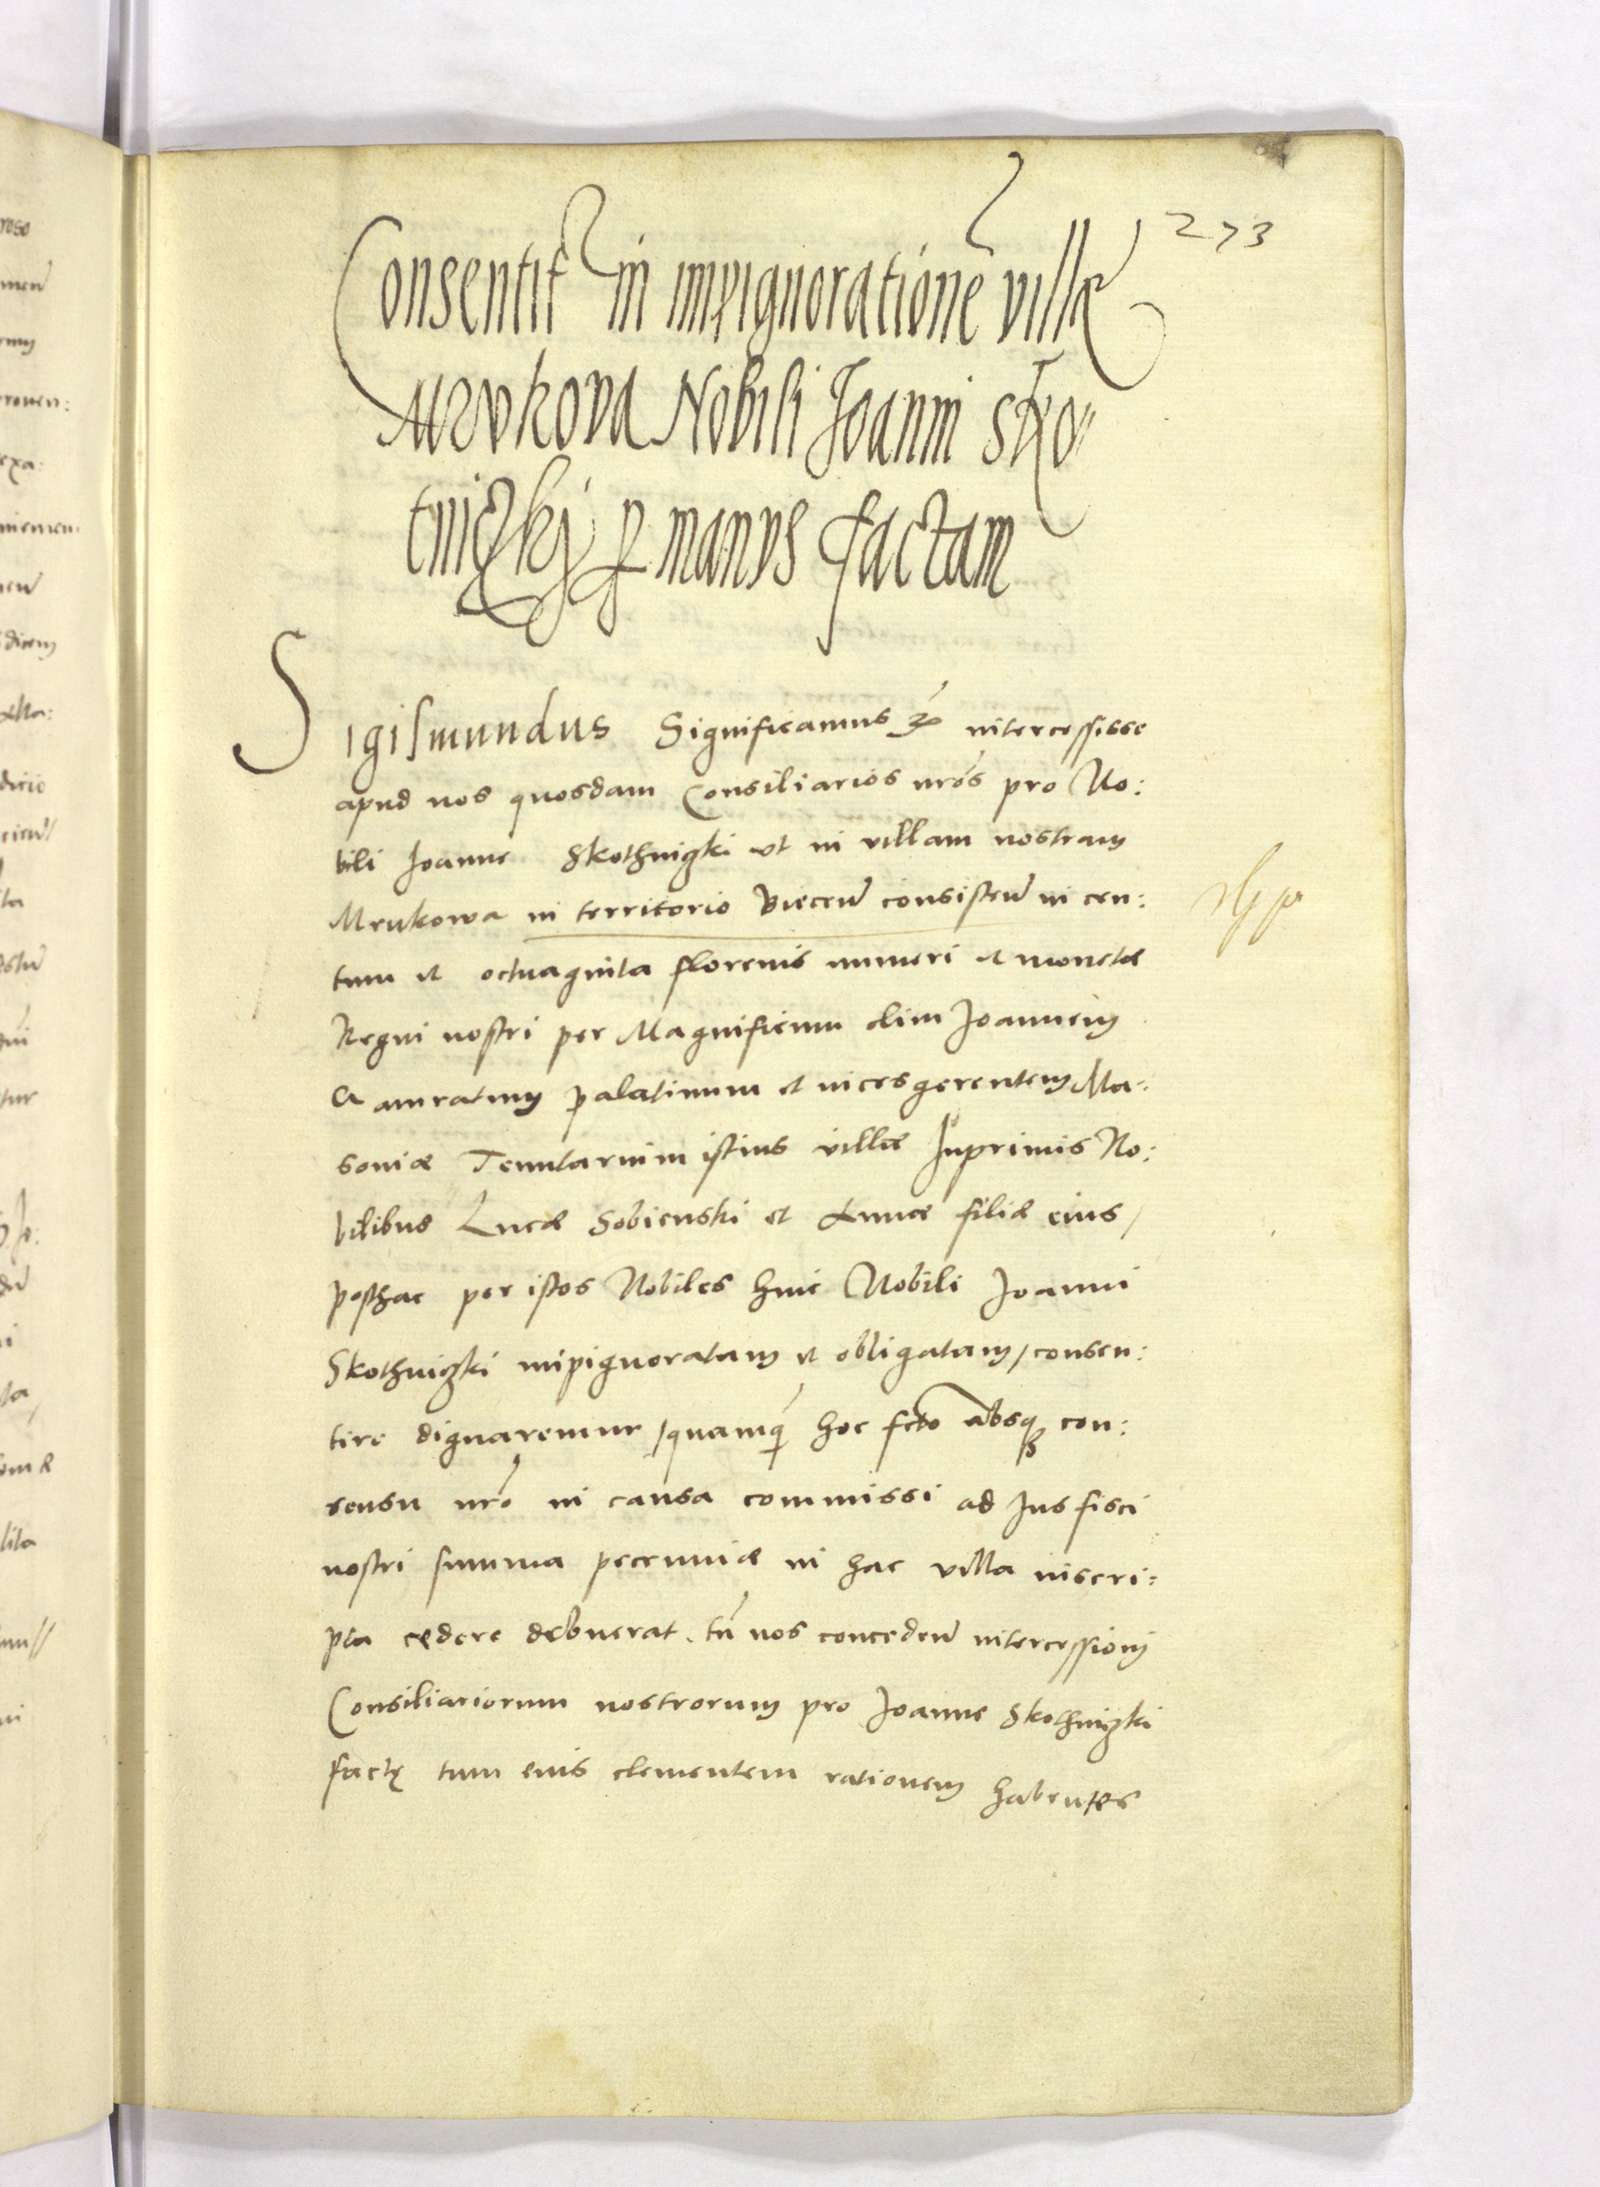 273
Consentit˜ in impignoratione˜ villę
Mrvkova Nobili Joanni Sko„
tniczkj p manvs factam
Sigismundus Significamus ꝛc intercessisse
apud nos quosdam Consiliarios nr̃os pro No:
bili Joanne Skothniczki ut in villam nostram
Mrukowa in territorio Biecen̄ consisten̄ in cen:
tum et octuaginta florenis numeri et monetæ
Regni nostri per Magnificum olim Joannem
Gamratum palatinum et vicesgerentem Ma:
soviæ Tenutarium istius villæ Inprimis No:
bilibus Lucæ Sobienski et Annæ filiæ eius/
posthac per istos Nobiles huic Nobili Joanni
Skothniczki impignoratam et obligatam/consen:
tire dignaremur/quamq̃ hoc fcto absqꝫ con:
sensu nr̃o in causa commissi ad Jus fisci
nostri summa pecuniæ in hac villa inscri=
pta cedere debuerat. tn̄ nos conceden̄ intercessioni
Consiliariorum nostrorum pro Joanne Skothniczki
factę tum eius clementem rationem habentes